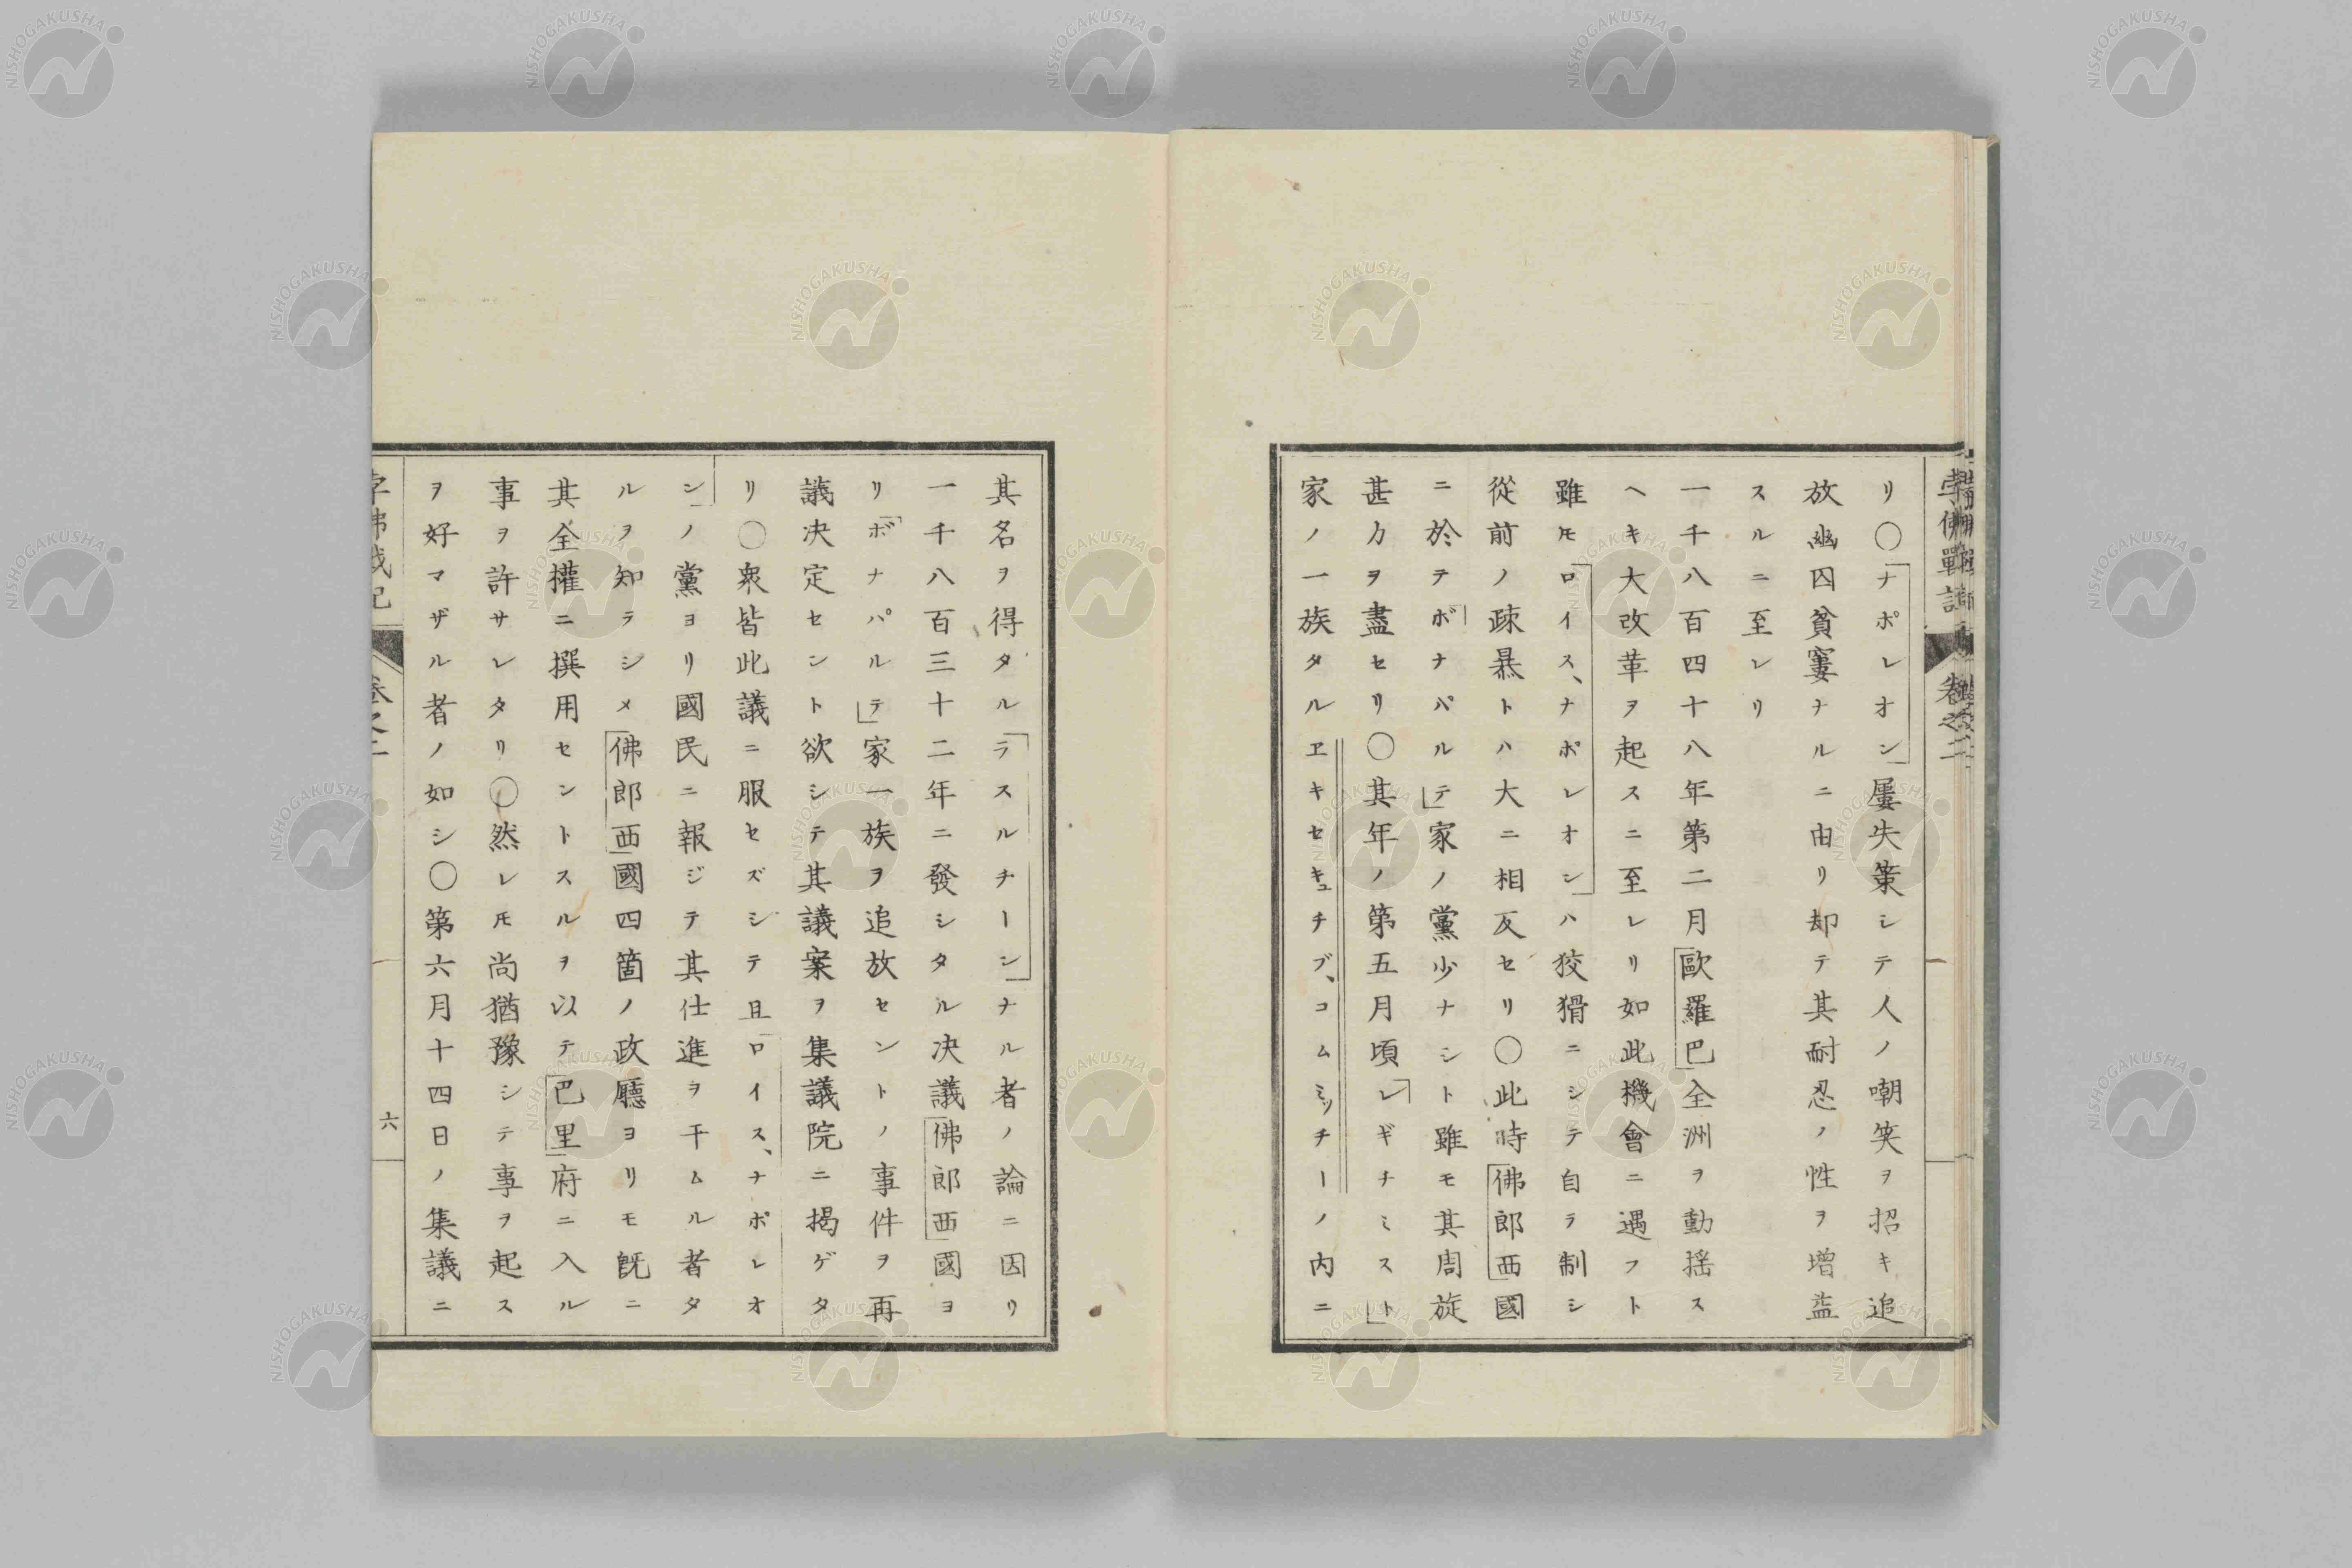 孛佛戰記
卷之二
リ〇ナポレオン屢失策シテ人ノ嘲笑ヲ招キ追
放幽囚貧窶ナルニ由リ却テ其耐忍ノ性ヲ増益
スルニ至レリ
一千八百四十八年第二月歐羅巴全洲ヲ動揺ス
ヘキ大改革ヲ起スニ至レリ如此機會ニ遇フト
雖𪜈ロイス、ナポレオンハ狡猾ニシテ自ラ制シ
從前ノ疎暴トハ大ニ相反セリ〇此時佛郎西國
ニ於テ「ボナパルテ」家ノ黨少ナシト雖モ其周旋
甚力ヲ盡セリ〇其年ノ第五月頃「レギチミスト」
家ノ一族タルヱキセキュチブ、コムミッチーノ内ニ
其名ヲ得タルラスルチーンナル者ノ論ニ因リ
一千八百三十二年ニ發シタル决議佛郎西國ヨ
リ「ボナパルテ」家一族ヲ追放セントノ事件ヲ再
議决定セント欲シテ其議案ヲ集議院ニ揭ゲタ
リ〇衆皆此議ニ服セズシテ且ロイス、ナポレオ
ンノ黨ヨリ國民ニ報ジテ其仕進ヲ干ムル者タ
ルヲ知ラシメ佛郎西國四箇ノ政廳ヨリモ既ニ
其全權ニ撰用セントスルヲ以テ巴里府ニ入ル
事ヲ許サレタリ〇然レ𪜈尚猶豫シテ事ヲ起ス
ヲ好マザル者ノ如シ〇第六月十四日ノ集議ニ
孛佛戰記
卷之二
六
NISHOGAKUSHA